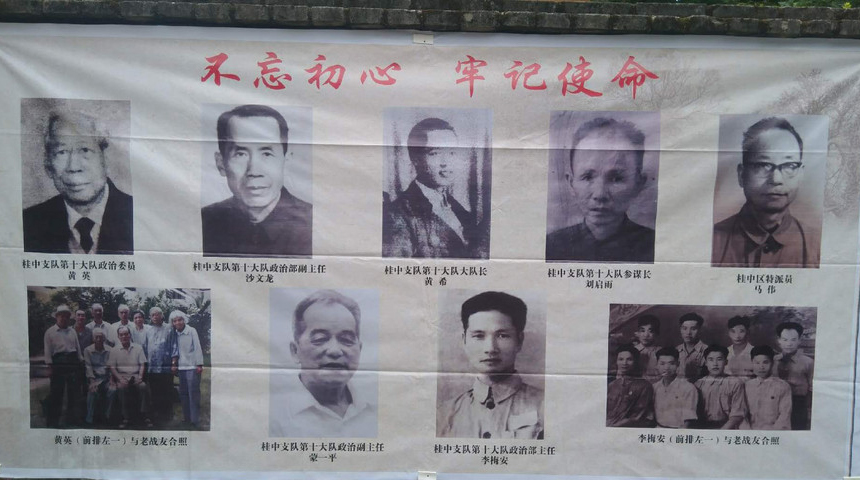 不忘初心 牢记使命
桂中支队第十大队政治委员
黄 英
桂中支队第十大队政治部副主任
沙文龙
桂中支队第十大队大队长
黄 希
桂中支队第十大队参谋长
刘启雨
桂中区特派员
马 伟
黄英（前排左一）与老战友合照
桂中支队第十大队政治副主任
蒙一平
桂中支队第十大队政治部主任
李梅安
李梅安（前排左一）与老战友合照